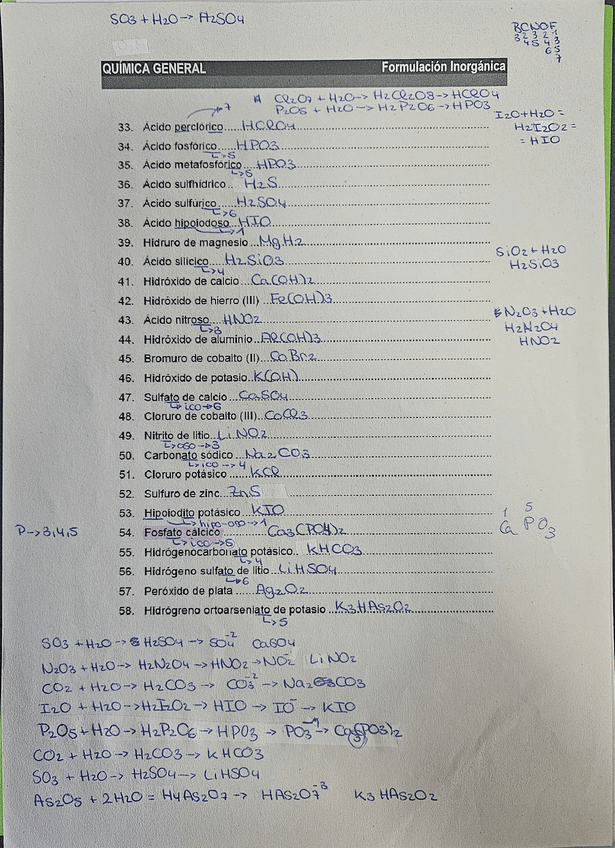 SO3 + H2O → H2SO4
B C N O F
3 2 3 2 1
4 5 4 3
6 5
7
QUÍMICA GENERAL Formulación Inorgánica
Cl2O7 + H2O → H2Cl2O8 → HClO4
P2O5 + H2O → H2P2O6 → HPO3
→7
I2O + H2O =
H2I2O2 =
= HIO
33. Ácido perclórico.....HClO4
34. Ácido fosfórico.....HPO3
↳5
35. Ácido metafosfórico...HPO3
↳5
36. Ácido sulfhídrico...H2S
37. Ácido sulfúrico.....H2SO4
↳6
38. Ácido hipoiodoso...HIO
→1
39. Hidruro de magnesio...MgH2
40. Ácido silícico.....H2SiO3
↳4
SiO2 + H2O
H2SiO3
41. Hidróxido de calcio...Ca(OH)2
42. Hidróxido de hierro (III)...Fe(OH)3
43. Ácido nitroso.....HNO2
↳3
N2O3 + H2O
H2N2O4
HNO2
44. Hidróxido de aluminio...Al(OH)3
45. Bromuro de cobalto (II)...CoBr2
46. Hidróxido de potasio...K(OH)
47. Sulfato de calcio...CaSO4
↳ico→6
48. Cloruro de cobalto (III)...CoCl3
49. Nitrito de litio...LiNO2
↳oso→3
50. Carbonato sódico...Na2CO3
↳ico→4
51. Cloruro potásico.....KCl
52. Sulfuro de zinc...ZnS
53. Hipoiodito potásico...KIO
↳hipo-oso→1
P→3,4,5
54. Fosfato cálcico.....Ca3(PO4)2
↳ico→5
1 5
Ca PO3
55. Hidrógenocarbonato potásico...KHCO3
↳4
56. Hidrógeno sulfato de litio...LiHSO4
↳6
57. Peróxido de plata.....Ag2O2
58. Hidrógreno ortoarseniato de potasio...K3HAs2O2
↳5
SO3 + H2O → H2SO4 → SO4-2 CaSO4
N2O3 + H2O → H2N2O4 → HNO2 → NO2- LiNO2
CO2 + H2O → H2CO3 → CO3-2 → Na2CO3
I2O + H2O → H2I2O2 → HIO → IO- → KIO
P2O5 + H2O → H2P2O6 → HPO3 → PO3-1 → Ca3(PO3)2
CO2 + H2O → H2CO3 → KHCO3
SO3 + H2O → H2SO4 → LiHSO4
As2O5 + 2H2O = H4As2O7 → HAs2O7-3 K3HAs2O2